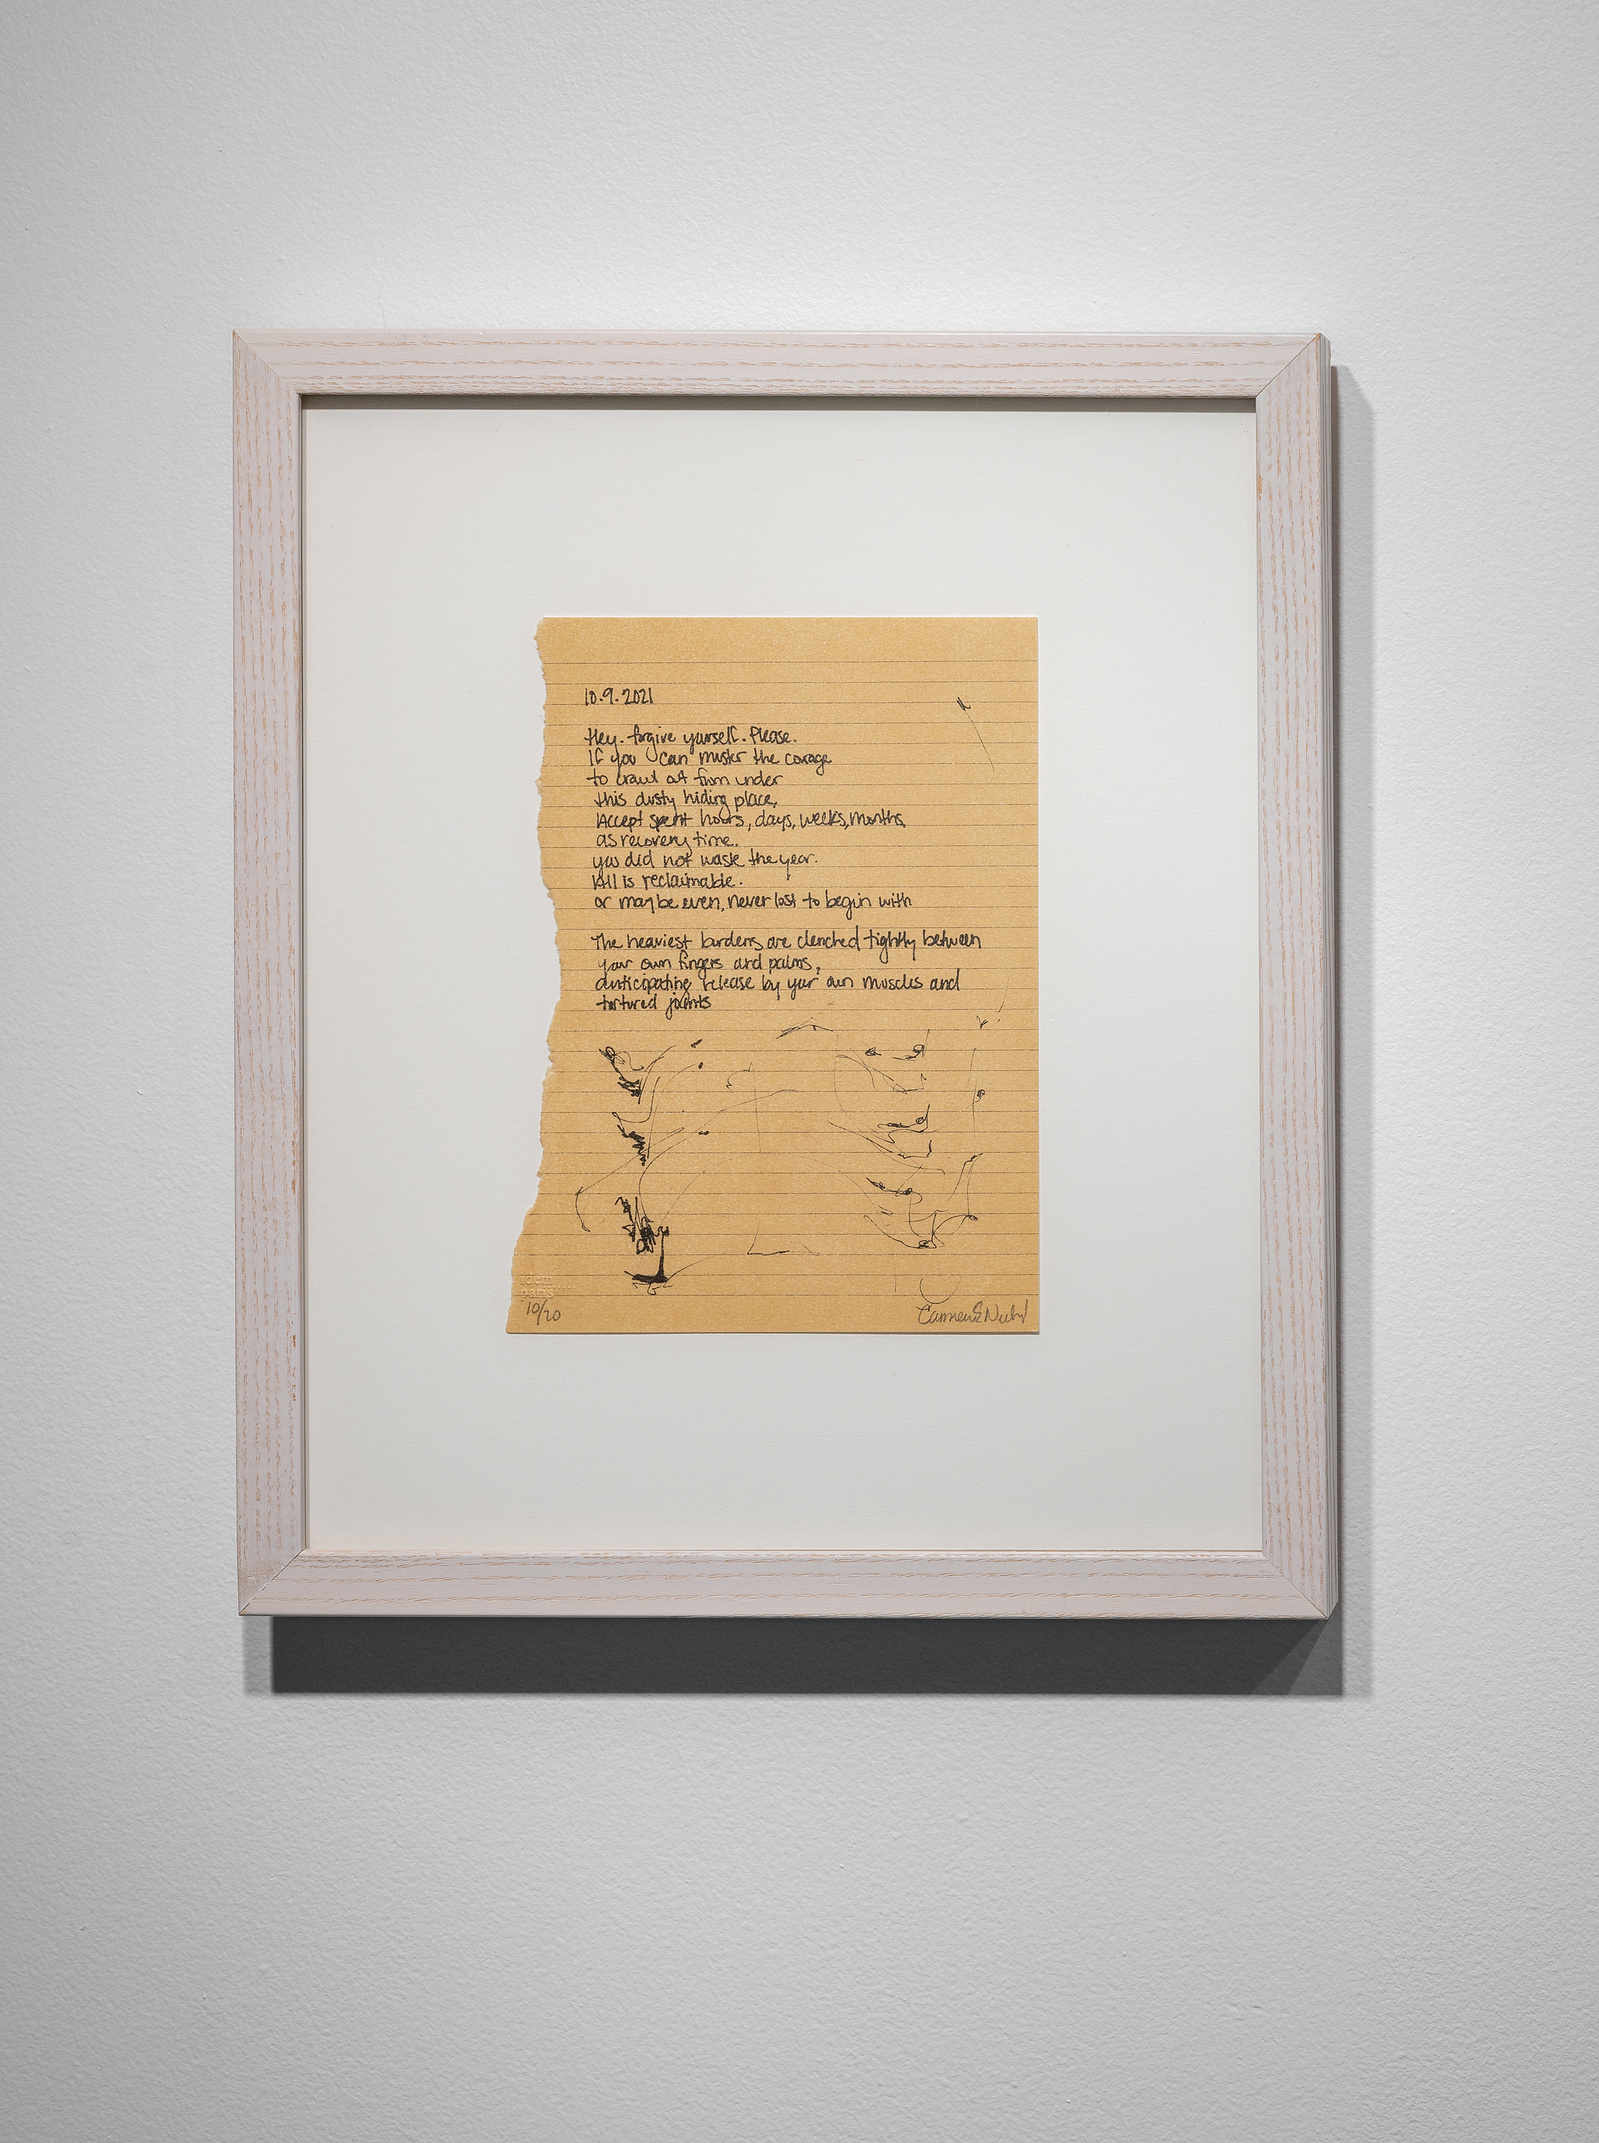 10.9.2021
Hey. forgive yourself. Please.
If you can muster the corage
to crawl out from under
this dusty hiding place,
Accept spent hours, days, weeks, months,
as recovery time.
you did not waste the year.
All is reclaimable.
or maybe even, never lost to begin with
The heaviest burdens are clenched tightly between
your own fingers and palms,
anticipating release by your own muscles and
tortured joints
idem
paris
10/20